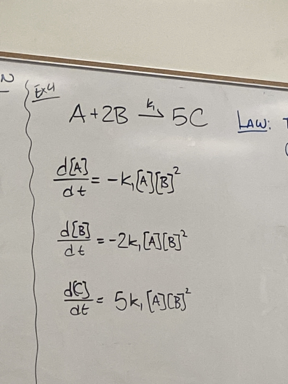 Ex4
A+2B k₁→ 5C
LAW:
d[A]/dt = -k₁[A][B]²
d[B]/dt = -2k₁[A][B]²
d[C]/dt = 5k₁[A][B]²